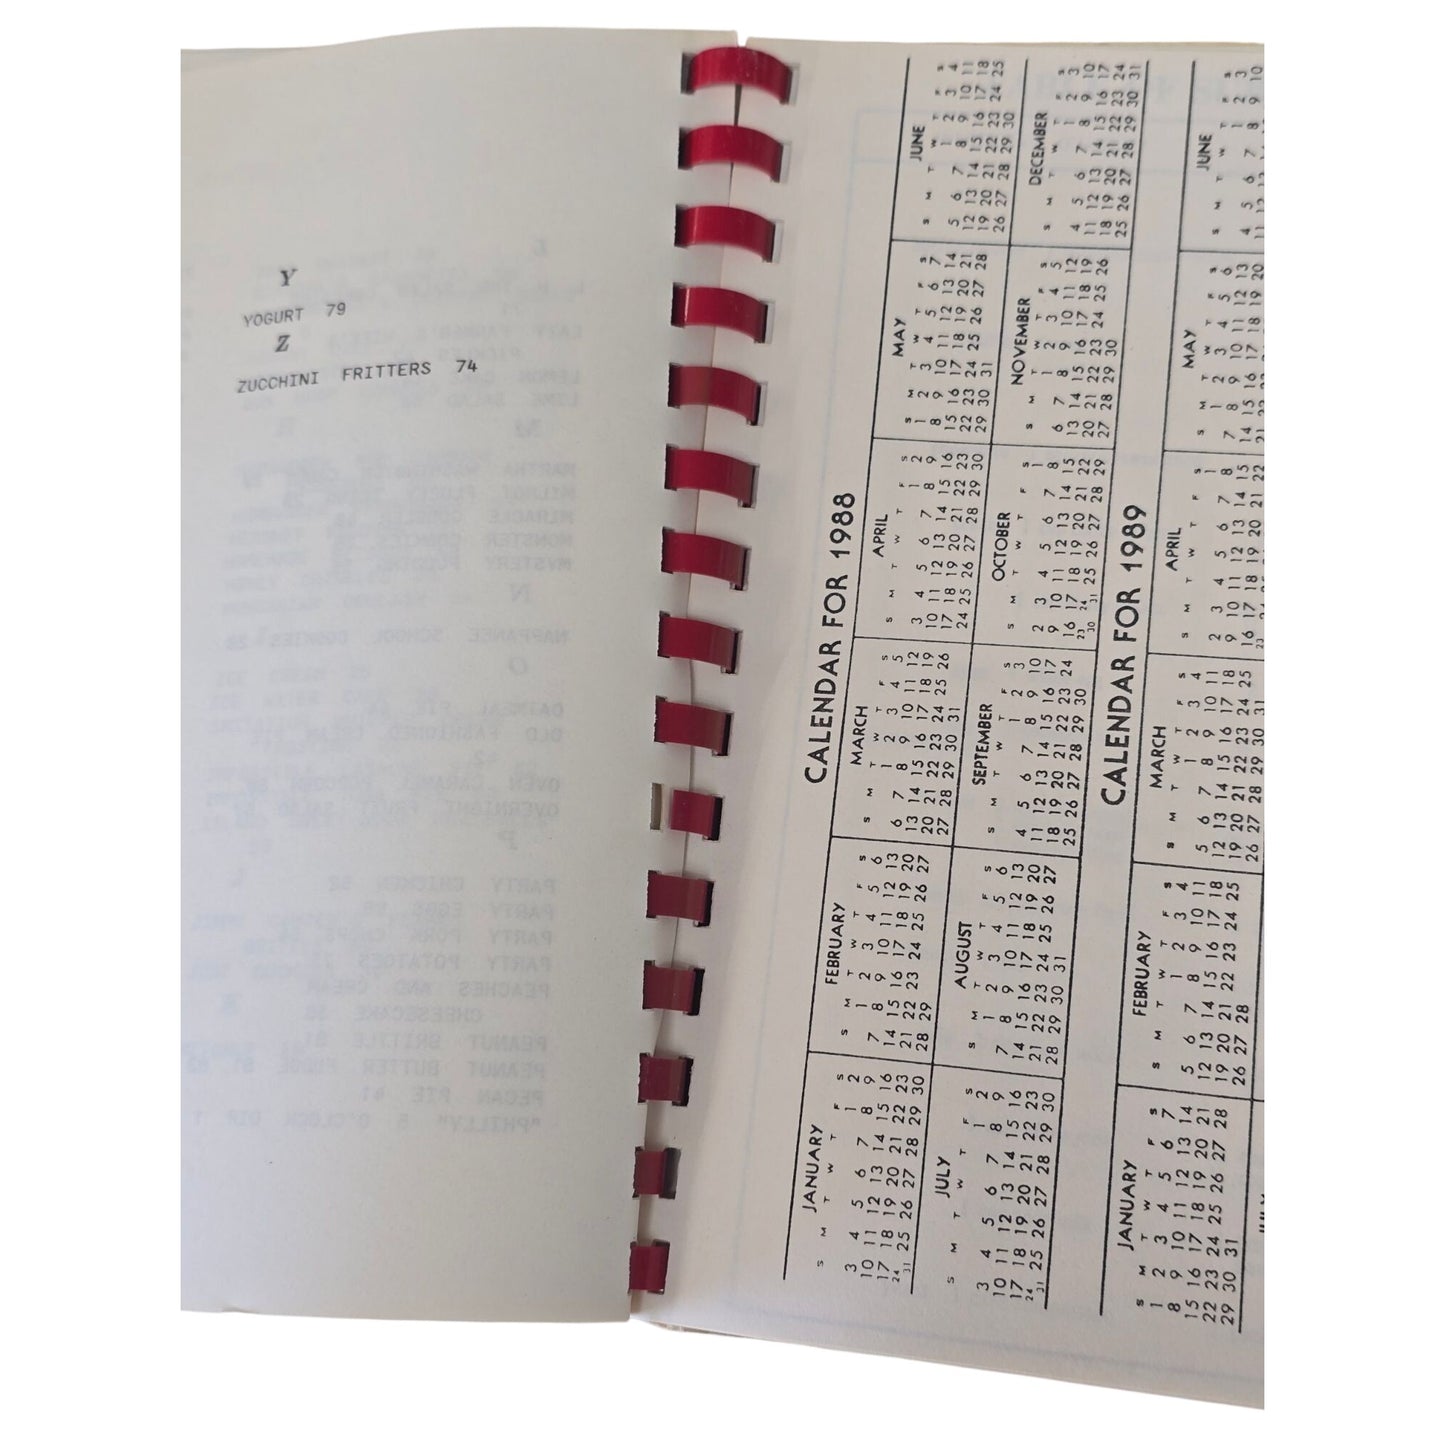 Y
YOGURT 79
Z
ZUCCHINI FRITTERS 74
CALENDAR FOR 1988
JANUARY
S M T W T F S
1 2
3 4 5 6 7 8 9
10 11 12 13 14 15 16
17 18 19 20 21 22 23
24 31 25 26 27 28 29 30
FEBRUARY
S M T W T F S
1 2 3 4 5 6
7 8 9 10 11 12 13
14 15 16 17 18 19 20
21 22 23 24 25 26 27
28 29
MARCH
S M T W T F S
1 2 3 4 5
6 7 8 9 10 11 12
13 14 15 16 17 18 19
20 21 22 23 24 25 26
27 28 29 30 31
APRIL
S M T W T F S
1 2
3 4 5 6 7 8 9
10 11 12 13 14 15 16
17 18 19 20 21 22 23
24 25 26 27 28 29 30
MAY
S M T W T F S
1 2 3 4 5 6 7
8 9 10 11 12 13 14
15 16 17 18 19 20 21
22 23 24 25 26 27 28
29 30 31
JUNE
S M T W T F S
1 2 3 4
5 6 7 8 9 10 11
12 13 14 15 16 17 18
19 20 21 22 23 24 25
26 27 28 29 30
JULY
S M T W T F S
1 2
3 4 5 6 7 8 9
10 11 12 13 14 15 16
17 18 19 20 21 22 23
24 31 25 26 27 28 29 30
AUGUST
S M T W T F S
1 2 3 4 5 6
7 8 9 10 11 12 13
14 15 16 17 18 19 20
21 22 23 24 25 26 27
28 29 30 31
SEPTEMBER
S M T W T F S
1 2 3
4 5 6 7 8 9 10
11 12 13 14 15 16 17
18 19 20 21 22 23 24
25 26 27 28 29 30
OCTOBER
S M T W T F S
1
2 3 4 5 6 7 8
9 10 11 12 13 14 15
16 17 18 19 20 21 22
23 30 24 31 25 26 27 28 29
NOVEMBER
S M T W T F S
1 2 3 4 5
6 7 8 9 10 11 12
13 14 15 16 17 18 19
20 21 22 23 24 25 26
27 28 29 30
DECEMBER
S M T W T F S
1 2 3
4 5 6 7 8 9 10
11 12 13 14 15 16 17
18 19 20 21 22 23 24
25 26 27 28 29 30 31
CALENDAR FOR 1989
JANUARY
S M T W T F S
1 2 3 4 5 6 7
8 9 10 11 12 13 14
15 16 17 18 19 20 21
22 23 24 25 26 27 28
29 30 31
FEBRUARY
S M T W T F S
1 2 3 4
5 6 7 8 9 10 11
12 13 14 15 16 17 18
19 20 21 22 23 24 25
26 27 28
MARCH
S M T W T F S
1 2 3 4
5 6 7 8 9 10 11
12 13 14 15 16 17 18
19 20 21 22 23 24 25
26 27 28 29 30 31
APRIL
S M T W T F S
1
2 3 4 5 6 7 8
9 10 11 12 13 14 15
16 17 18 19 20 21 22
MAY
S M T W T F S
1 2 3 4 5 6
7 8 9 10 11 12 13
14 15 16 17 18 19 20
JUNE
S M T W T F S
1 2 3
4 5 6 7 8 9 10